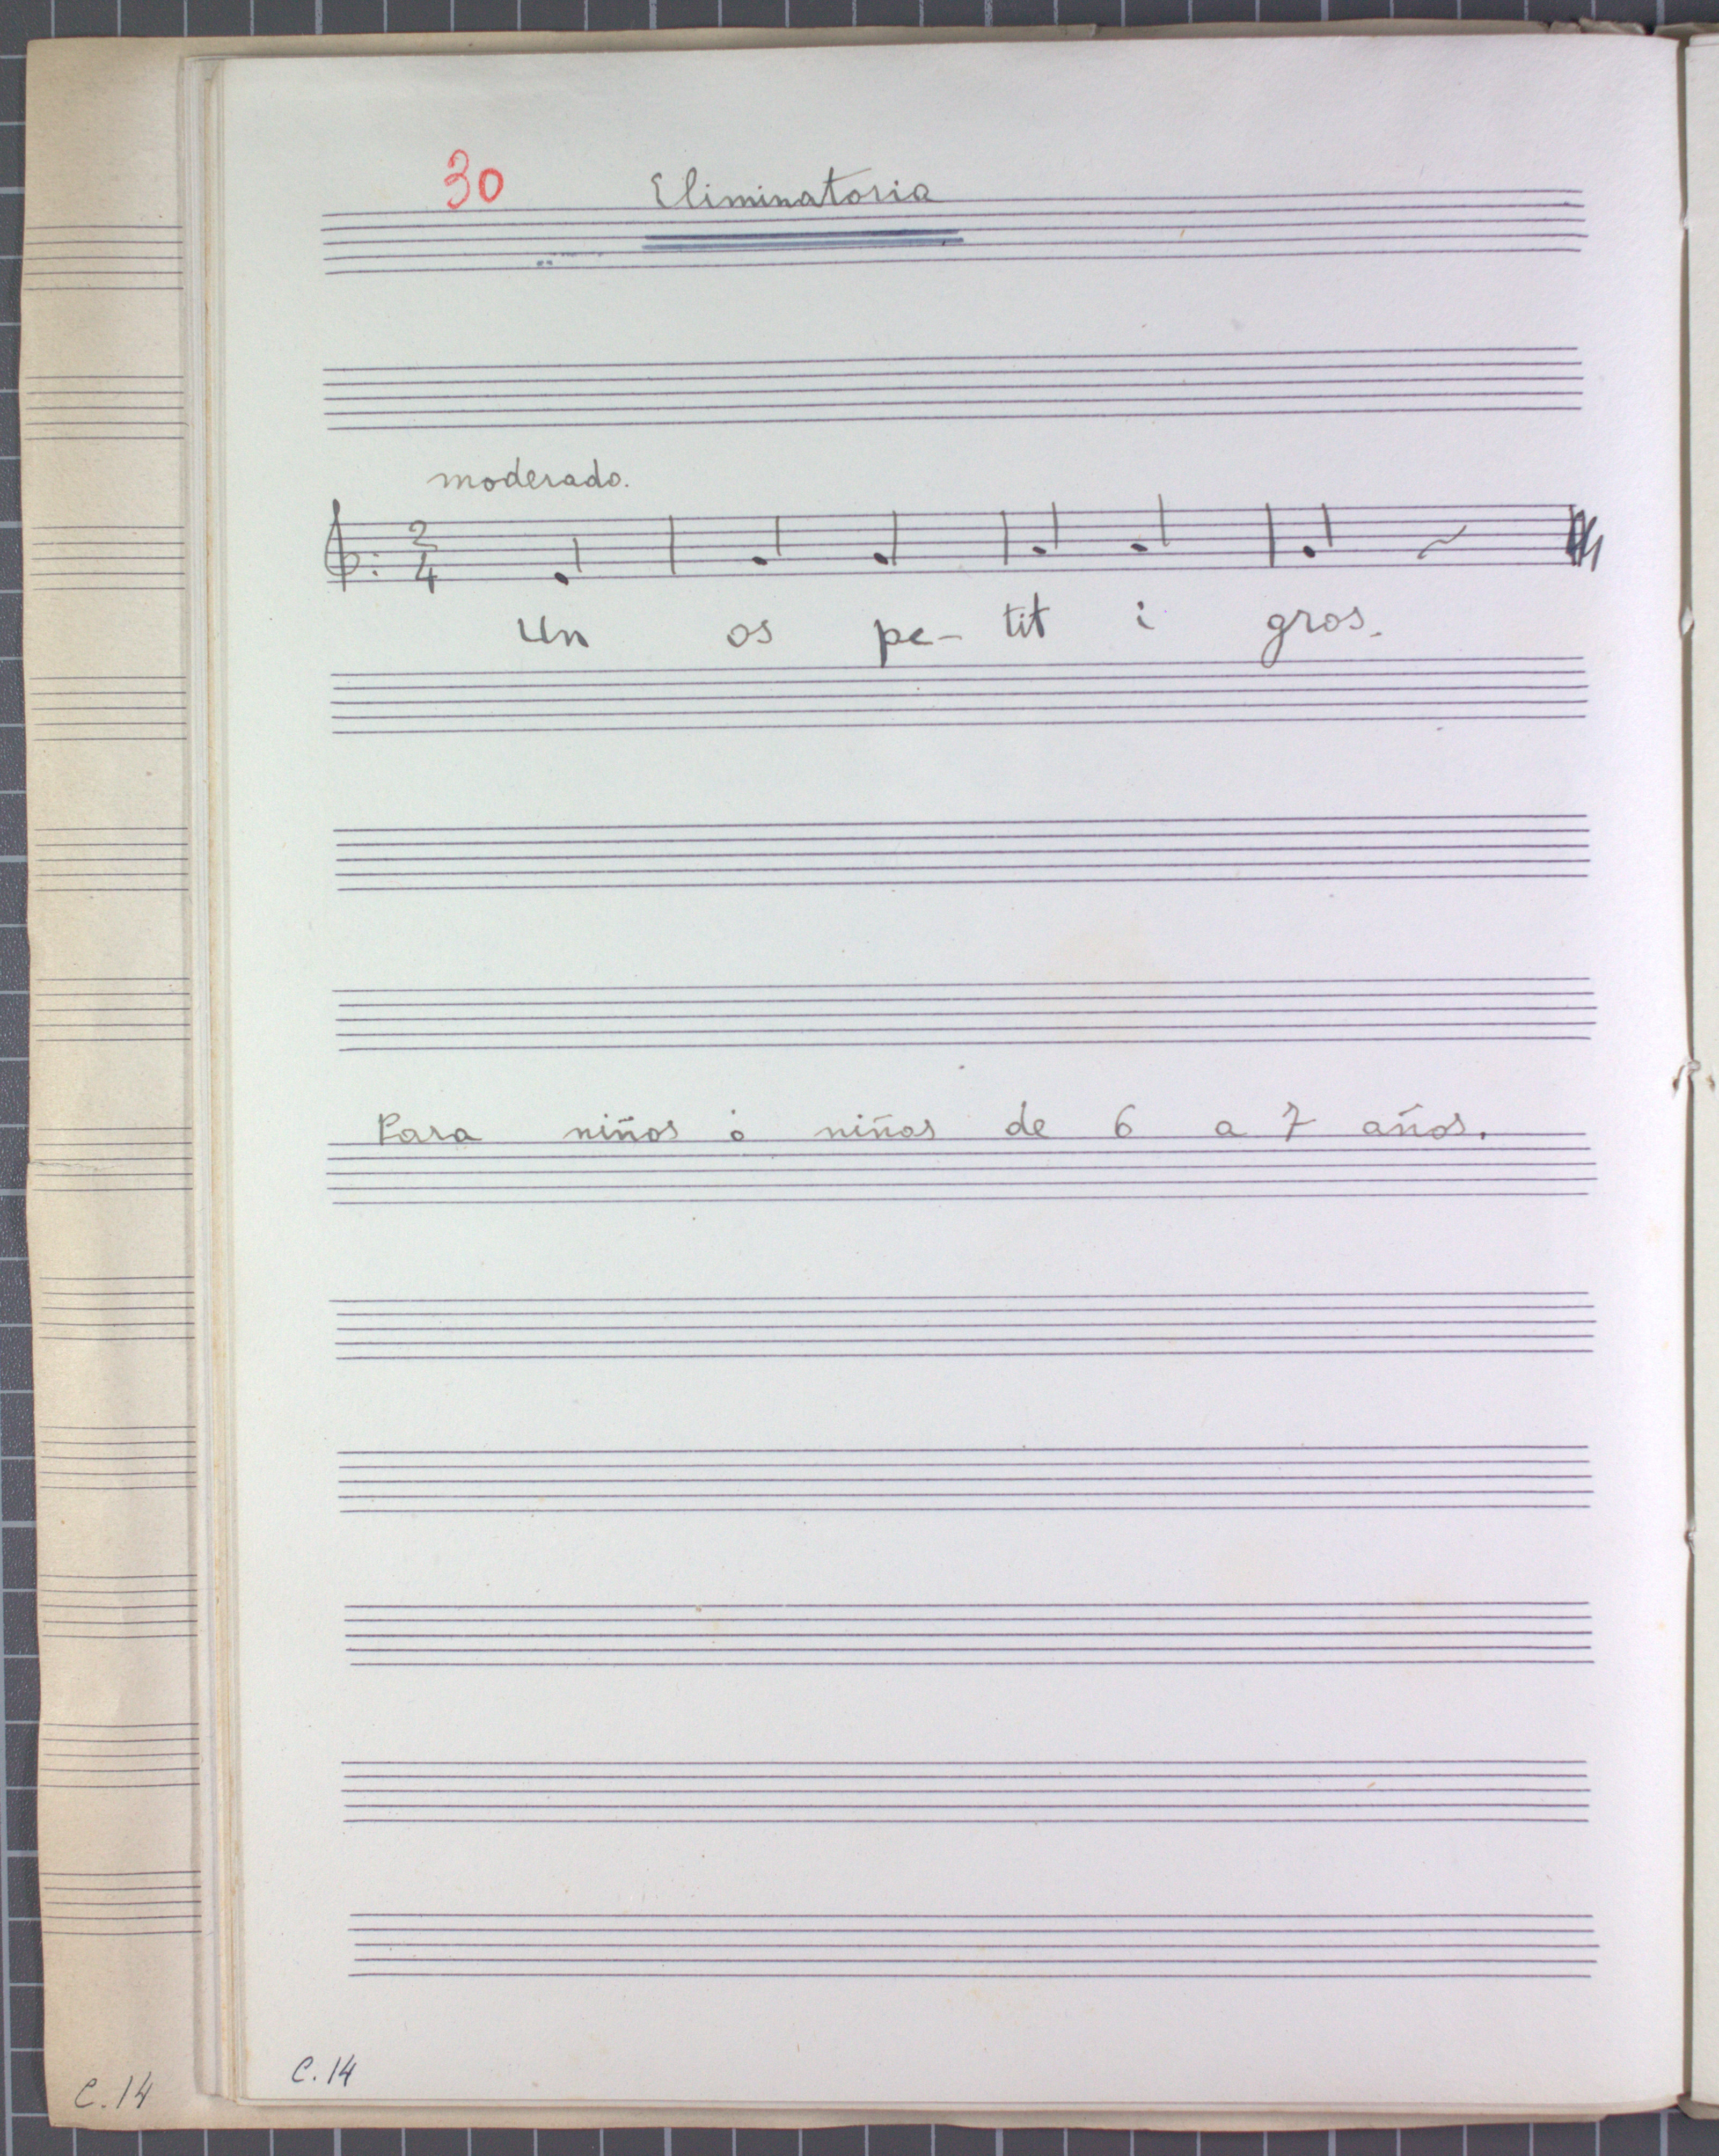 30 Eliminatoria
moderado.
2
4
Un os pe- tit i gros.
Para niños ó niñas de 6 a 7 años.
C.14
C.14